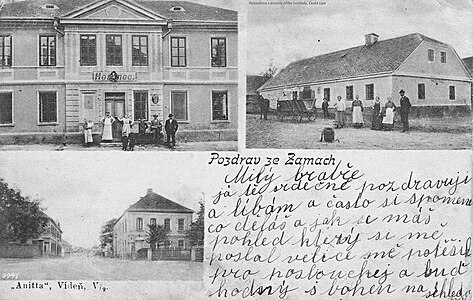 Hostinec
Pozdrav ze Žamach.
Milý bratře
já tě srdečně pozdravuji
a líbám a často si spomenu
co děláš a jak se máš
pohled který si mě
poslal velice mě potěšil
pro poslouchej a buď
hodný s bohem na shledanou
5943
„Anitta", Videň, V/2.